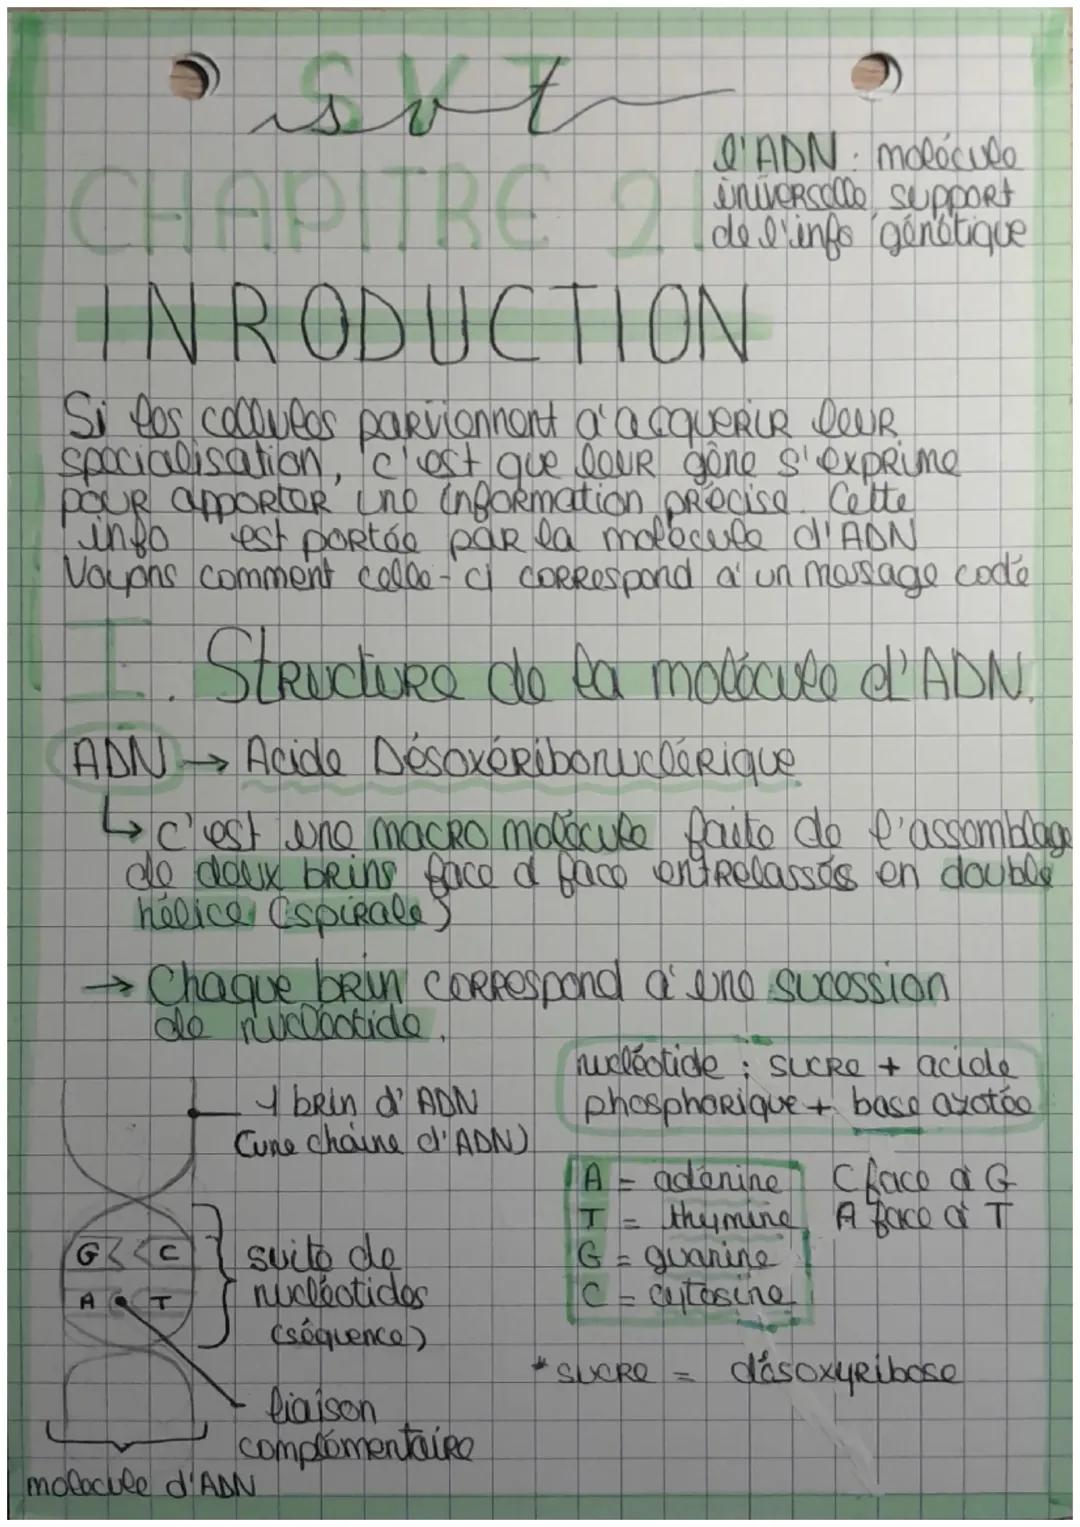 SVT
svt
CHAPITRE 2
l'ADN : molécule
universelle, support
de l'info génétique
INRODUCTION
Si les cellules parviennent à acquérir leur
spécialisation, c'est que leur gène s'exprime
pour apporter une information précise. Cette
info est portée par la molécule d'ADN
Voyons comment celle-ci correspond à un message codé
I. Structure de la molécule d'ADN.
ADN → Acide Désoxéribonuclérique
↳ c'est une macro molécule faite de l'assemblage
de deux brins face à face entrelassés en double
hélice (spirale)
→ Chaque brin correspond à une sucession
de nucléotide.
nucléotide : sucre + acide
phosphorique + base azotée
1 brin d'ADN
(une chaîne d'ADN)
A = adénine C face à G
T = thymine A face à T
G = guanine
C = cytosine
G C
A T
suite de
nucléotides
(séquence)
* sucre = désoxyribose
liaison
complémentaire
molécule d'ADN